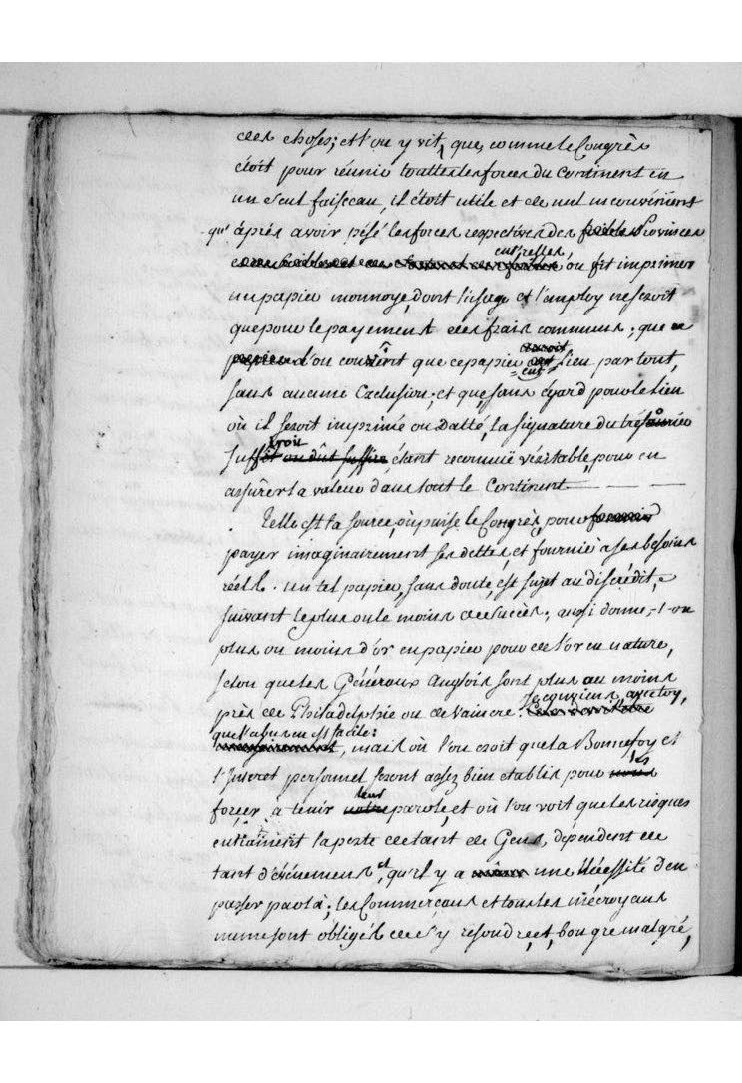 des choses; et l'on y vit, que, comme le Congrès
étoit pour réunir touttes les forces du Continent en
un seul faisceau, il étoit utile et de nul inconvenient
qu'après avoir pésé les forces respectives des foibles Provinces
entr'elles, on fit imprimer
un papier monnoye, dont l'usage et l'employ ne seroit
que pour le payement des frais communs; que ce
papier d'on convînt que ce papier auroit eut lieu par tout,
sans aucune Exclusion; et que, sans égard pour le lieu
où il seroit imprimé ou Datté, la signature du trésorier
suffiroit ou dût suffire, étant reconnuë véritable, pour en
assûrer la valeur dans tout le Continent.
Telle est la source, où puise le Congrès, pour fournir
payer imaginairement ses dettes, et fournir à ses besoins
réels. un tel papier, sans doute, est sujet au discrédit,
suivant le plus ou le moins de succès; aussi donne-t-on
plus ou moins d'or en papier pour de l'or en nature,
selon que les Généraux Anglois sont plus au moins
près de Philadelphie ou de vaincre. Je conviens, avec toy,
que l'abus en est facile:
mais où l'on croit que la Bonne foy et
l'Interet personnel seront assez bien etablis pour nous les
forcer à tenir notre leur parole, et où l'on voit que les risques
entraînent la perte de tant de Gens, dependent de
tant d'événemens, et qu'il y a même une Nécessité d'en
passer par là; les Commerçans et tous les mécroyans
même sont obligés de s'y resoudre, et, bon gré malgré,